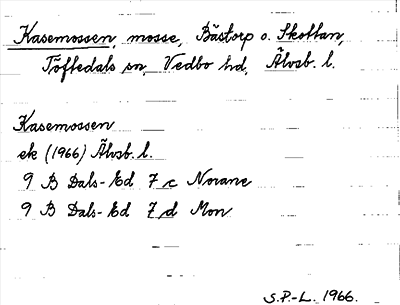 Kasemossen, mosse, Bästorp o. Skottan,
Töftedals sn, Vedbo hd, Älvsb. l.
Kasemossen
ek (1966) Älvsb. l.
9 B Dals-Ed 7 c Norane
9 B Dals-Ed 7 d Mon
S.P-L. 1966.